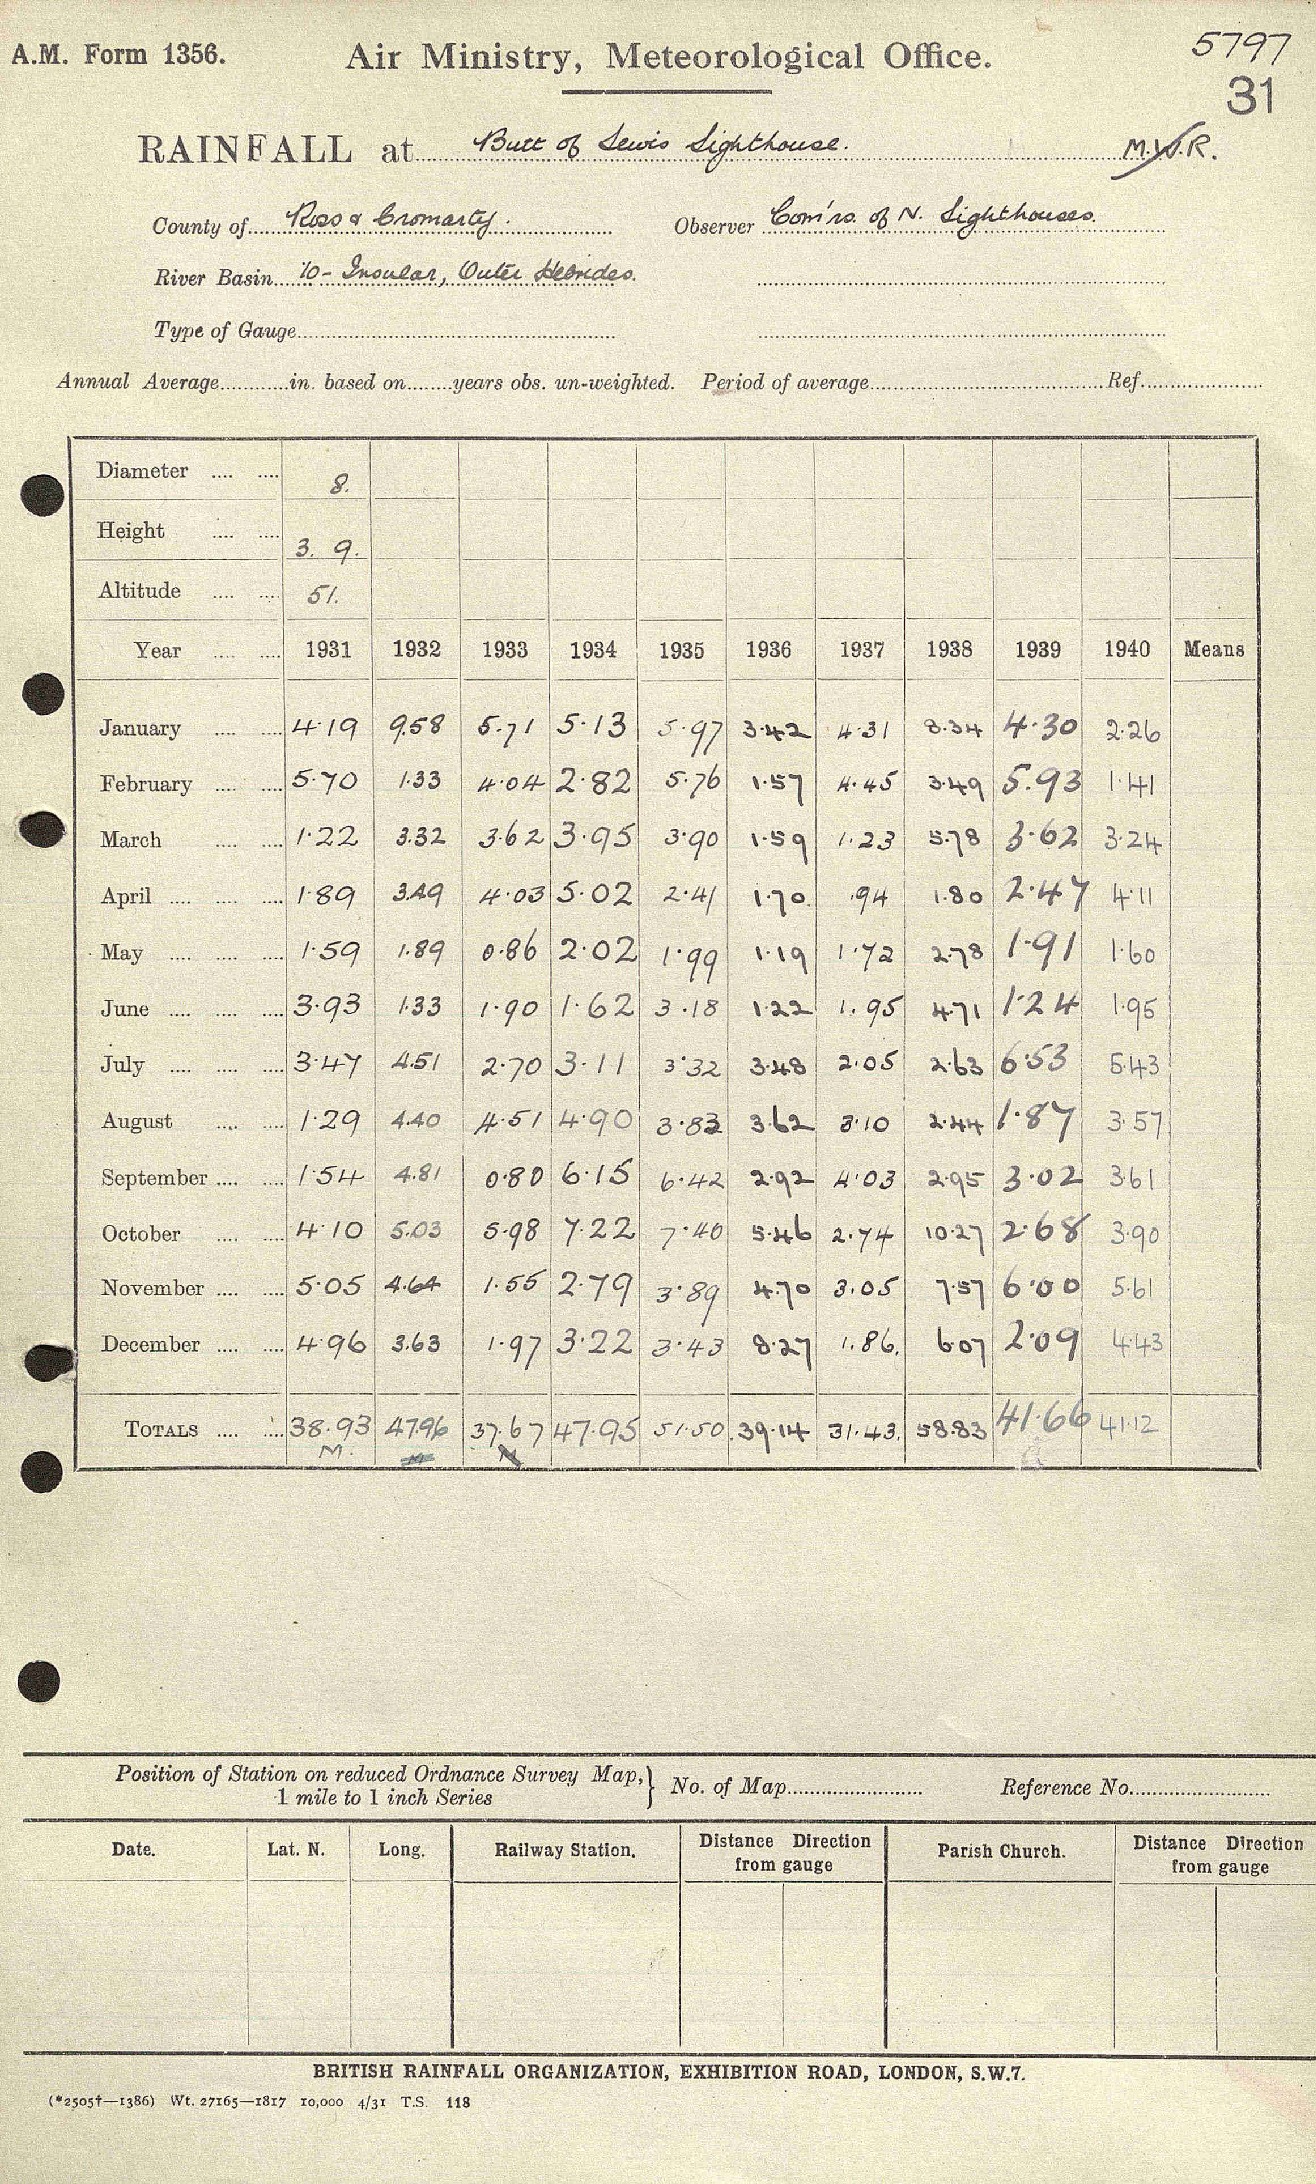 A.M. Form 1356. Air Ministry, Meteorological Office. 5797
31
RAINFALL at Butt of Lewis Lighthouse. M.W.R.
County of Ross & Cromarty. Observer Com'rs. of N. Lighthouses.
River Basin 10- Insular, Outer Hebrides.
Type of Gauge
Annual Average in. based on years obs. un-weighted. Period of average Ref
Diameter 8.
Height 3. 9.
Altitude 51.
Year 1931 1932 1933 1934 1935 1936 1937 1938 1939 1940 Means
January 4·19 9.58 5.71 5·13 5·97 3·42 4·31 8·34 4·30 2·26
February 5·70 1·33 4·04 2·82 5·76 1·57 4·45 3·49 5.93 1·41
March 1·22 3.32 3·62 3·95 3·90 1·59 1·23 5·78 3·62 3·24
April 1·89 3.49 4·03 5·02 2·41 1·70 ·94 1·80 2·47 4·11
May 1·59 1·89 0·86 2·02 1·99 1·19 1·72 2·78 1·91 1·60
June 3·93 1·33 1·90 1·62 3·18 1·22 1·95 4·71 1·24 1·95
July 3·47 4.51 2·70 3·11 3·32 3·48 2·05 2·63 6·53 5·43
August 1·29 4.40 4·51 4·90 3·83 3·62 3·10 2·44 1·87 3·57
September 1·54 4.81 0·80 6·15 6·42 2·92 4·03 2·95 3·02 3·61
October 4·10 5.03 5·98 7·22 7·40 5·46 2·74 10·27 2·68 3·90
November 5·05 4.64 1·55 2·79 3·89 4·70 3·05 7·57 6·00 5·61
December 4·96 3.63 1·97 3·22 3·43 8·27 1·86. 6·07 2·09 4·43
TOTALS 38·93 47.96 37·67 47·95 51·50 39·14 31·43. 58·83 41·66 41·12
M. M M
Position of Station on reduced Ordnance Survey Map, } No. of Map Reference No.
1 mile to 1 inch Series
Date. Lat. N. Long. Railway Station. Distance Direction from gauge Parish Church. Distance Direction from gauge
BRITISH RAINFALL ORGANIZATION, EXHIBITION ROAD, LONDON, S.W.7.
(*2505†—1386) Wt. 27165—1817 10,000 4/31 T.S. 118